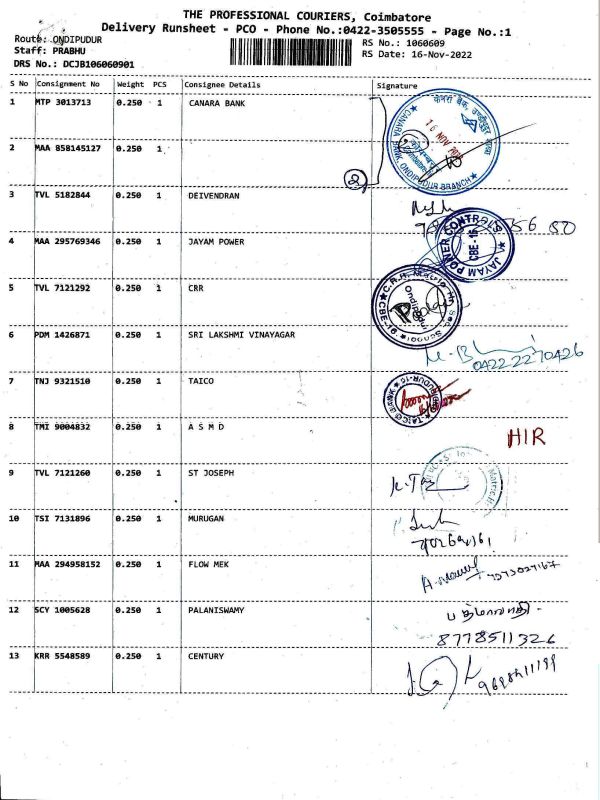 THE PROFESSIONAL COURIERS, Coimbatore
Delivery Runsheet - PCO - Phone No.:0422-3505555 - Page No.:1
Route: ONDIPUDUR
Staff: PRABHU
DRS No.: DCJB106060901
RS No.: 1060609
RS Date: 16-Nov-2022
S No Consignment No Weight PCS Consignee Details Signature
1 MTP 3013713 0.250 1 CANARA BANK
CANARA BANK ONDIPUDUR BRANCH
16 NOV
2 MAA 858145127 0.250 1
2
3 TVL 5182844 0.250 1 DEIVENDRAN
4 MAA 295769346 0.250 1 JAYAM POWER
JAYAM POWER CONTROLS
CBE-16
5 TVL 7121292 0.250 1 CRR
Ondipudur
6 PDM 1426871 0.250 1 SRI LAKSHMI VINAYAGAR
0422 2270426
7 TNJ 9321510 0.250 1 TAICO
8 TMI 9004832 0.250 1 A S M D
HIR
9 TVL 7121260 0.250 1 ST JOSEPH
10 TSI 7131896 0.250 1 MURUGAN
11 MAA 294958152 0.250 1 FLOW MEK
12 SCY 1005628 0.250 1 PALANISWAMY
8778511326
13 KRR 5548589 0.250 1 CENTURY